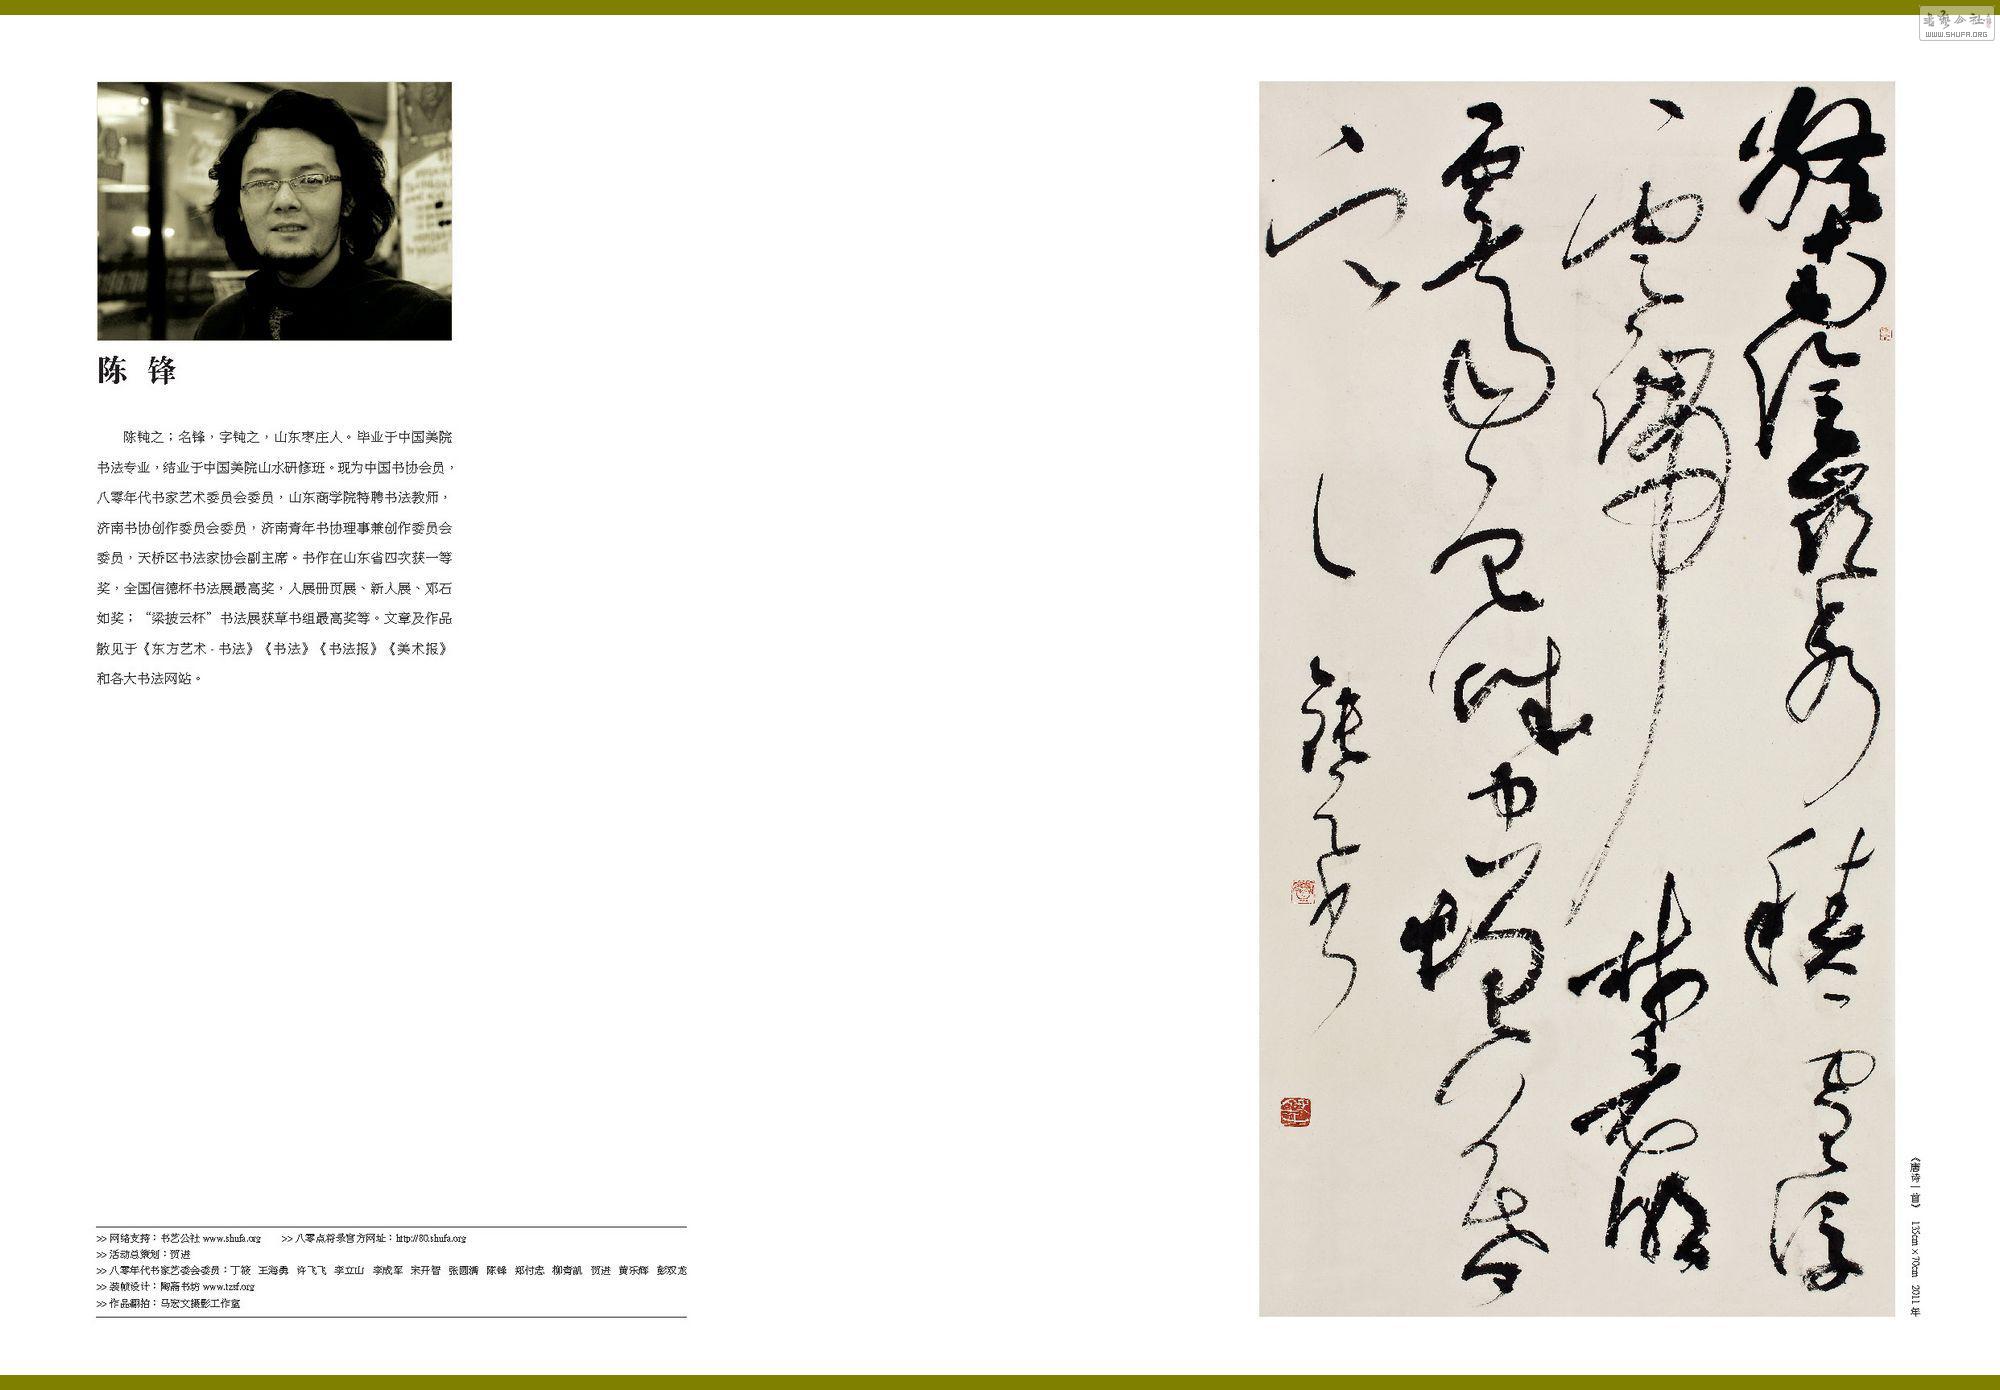 书艺公社
WWW.SHUFA.ORG
陈 锋
陈钝之；名锋，字钝之，山东枣庄人。毕业于中国美院
书法专业，结业于中国美院山水研修班。现为中国书协会员，
八零年代书家艺术委员会委员，山东商学院特聘书法教师，
济南书协创作委员会委员，济南青年书协理事兼创作委员会
委员，天桥区书法家协会副主席。书作在山东省四次获一等
奖，全国信德杯书法展最高奖，入展册页展、新人展、邓石
如奖；“梁披云杯”书法展获草书组最高奖等。文章及作品
散见于《东方艺术 - 书法》《书法》《书法报》《美术报》
和各大书法网站。
>> 网络支持：书艺公社 www.shufa.org >> 八零点将录官方网址：http://80.shufa.org
>> 活动总策划：贺进
>> 八零年代书家艺委会委员：丁筱 王海勇 许飞飞 李立山 李成军 宋开智 张圆满 陈锋 郑付忠 柳青凯 贺进 黄乐辉 彭双龙
>> 装帧设计：陶斋书坊 www.tzsf.org
>> 作品翻拍：马宏文摄影工作室
終南陰嶺秀積雪浮
雲端林表明
霽色城中增暮
寒
鈍之書
《唐诗一首》 135cm×70cm 2011 年